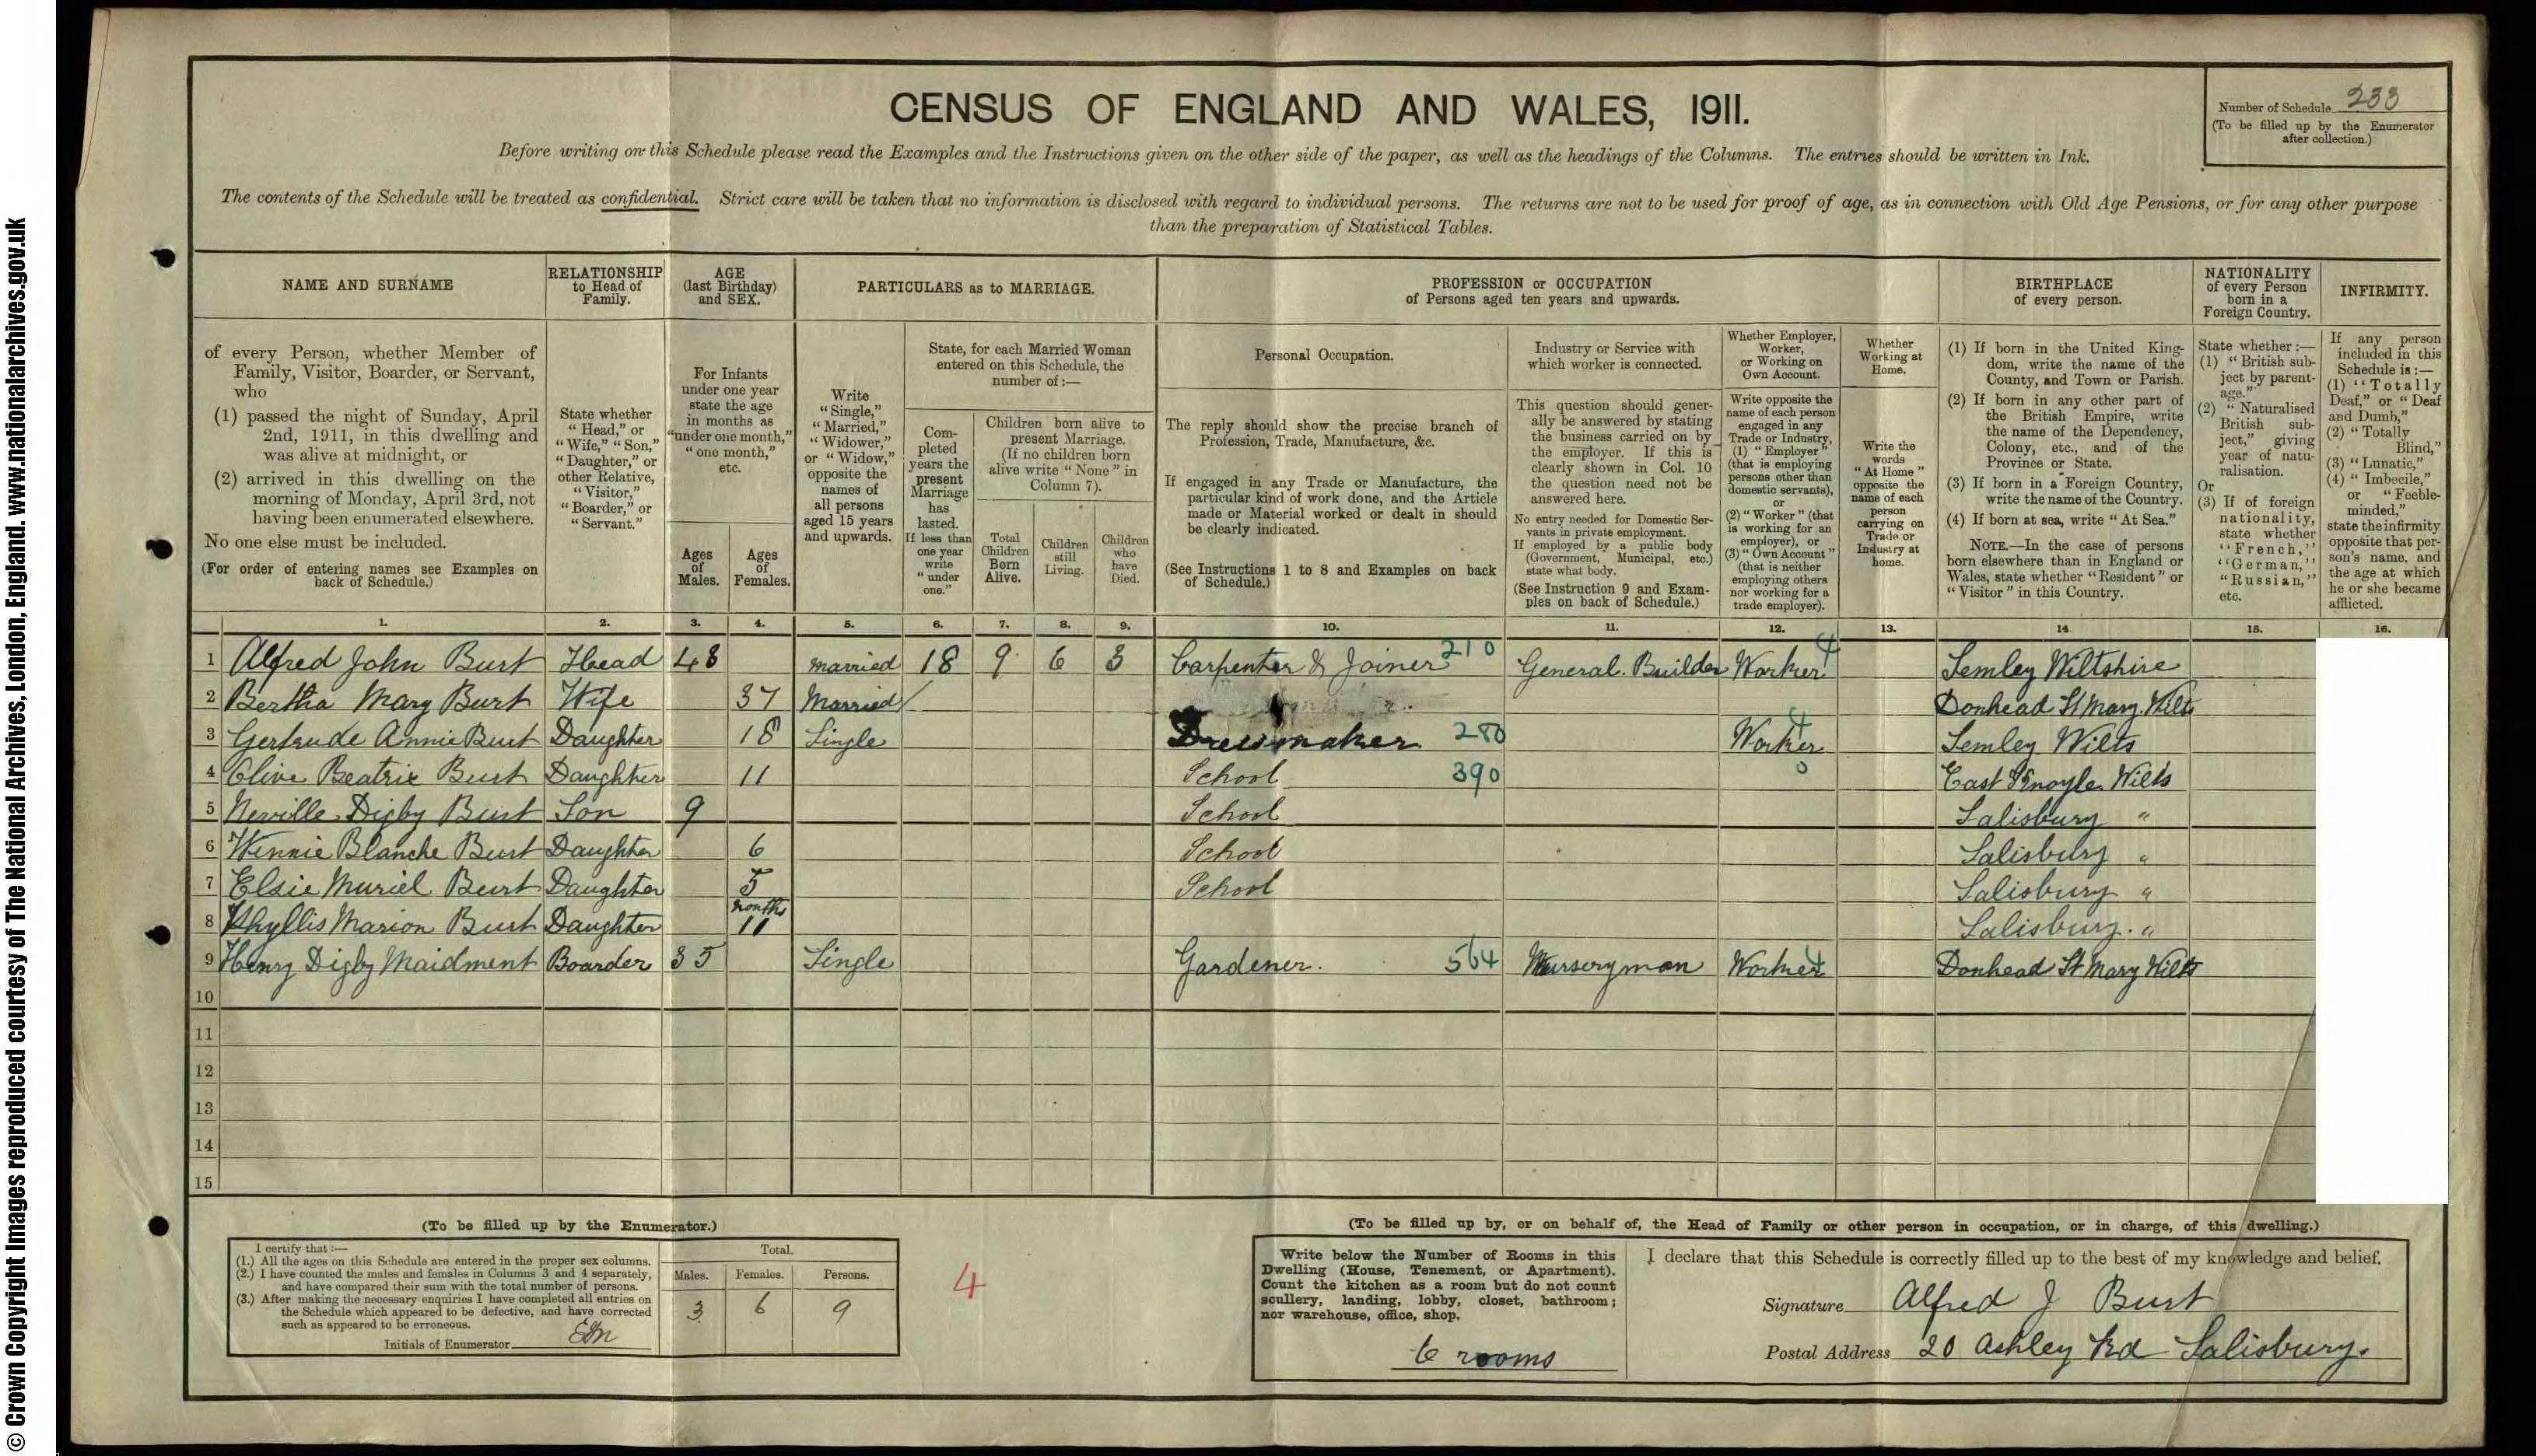 © Crown Copyright Images reproduced courtesy of The National Archives, London, England. www.nationalarchives.gov.uk
CENSUS OF ENGLAND AND WALES, 1911.
Number of Schedule 233
(To be filled up by the Enumerator
after collection.)
Before writing on this Schedule please read the Examples and the Instructions given on the other side of the paper, as well as the headings of the Columns. The entries should be written in Ink.
The contents of the Schedule will be treated as confidential. Strict care will be taken that no information is disclosed with regard to individual persons. The returns are not to be used for proof of age, as in connection with Old Age Pensions, or for any other purpose
than the preparation of Statistical Tables.
NAME AND SURNAME
of every Person, whether Member of
Family, Visitor, Boarder, or Servant,
who
(1) passed the night of Sunday, April
2nd, 1911, in this dwelling and
was alive at midnight, or
(2) arrived in this dwelling on the
morning of Monday, April 3rd, not
having been enumerated elsewhere.
No one else must be included.
(For order of entering names see Examples on
back of Schedule.)
RELATIONSHIP
to Head of
Family.
State whether
"Head," or
"Wife," "Son,"
"Daughter," or
other Relative,
"Visitor,"
"Boarder," or
"Servant."
AGE
(last Birthday)
and SEX.
For Infants
under one year
state the age
in months as
"under one month,"
"one month,"
etc.
Ages
of
Males.
Ages
of
Females.
PARTICULARS as to MARRIAGE.
Write
"Single,"
"Married,"
"Widower,"
or "Widow,"
opposite the
names of
all persons
aged 15 years
and upwards.
State, for each Married Woman
entered on this Schedule, the
number of :—
Com-
pleted
years the
present
Marriage
has
lasted.
If less than
one year
write
"under
one."
Children born alive to
present Marriage.
(If no children born
alive write "None" in
Column 7).
Total
Children
Born
Alive.
Children
still
Living.
Children
who
have
Died.
PROFESSION or OCCUPATION
of Persons aged ten years and upwards.
Personal Occupation.
The reply should show the precise branch of
Profession, Trade, Manufacture, &c.
If engaged in any Trade or Manufacture, the
particular kind of work done, and the Article
made or Material worked or dealt in should
be clearly indicated.
(See Instructions 1 to 8 and Examples on back
of Schedule.)
Industry or Service with
which worker is connected.
This question should gener-
ally be answered by stating
the business carried on by
the employer. If this is
clearly shown in Col. 10
the question need not be
answered here.
No entry needed for Domestic Ser-
vants in private employment.
If employed by a public body
(Government, Municipal, etc.)
state what body.
(See Instruction 9 and Exam-
ples on back of Schedule.)
Whether Employer,
Worker,
or Working on
Own Account.
Write opposite the
name of each person
engaged in any
Trade or Industry,
(1) "Employer"
(that is employing
persons other than
domestic servants),
or
(2) "Worker" (that
is working for an
employer), or
(3) "Own Account"
(that is neither
employing others
nor working for a
trade employer).
Whether
Working at
Home.
Write the
words
"At Home"
opposite the
name of each
person
carrying on
Trade or
Industry at
home.
BIRTHPLACE
of every person.
(1) If born in the United King-
dom, write the name of the
County, and Town or Parish.
(2) If born in any other part of
the British Empire, write
the name of the Dependency,
Colony, etc., and of the
Province or State.
(3) If born in a Foreign Country,
write the name of the Country.
(4) If born at sea, write "At Sea."
NOTE.—In the case of persons
born elsewhere than in England or
Wales, state whether "Resident" or
"Visitor" in this Country.
NATIONALITY
of every Person
born in a
Foreign Country.
State whether :—
(1) "British sub-
ject by parent-
age."
(2) "Naturalised
British sub-
ject," giving
year of natu-
ralisation.
Or
(3) If of foreign
nationality,
state whether
"French,"
"German,"
"Russian,"
etc.
INFIRMITY.
If any person
included in this
Schedule is :—
(1) "Totally
Deaf," or "Deaf
and Dumb,"
(2) "Totally
Blind,"
(3) "Lunatic,"
(4) "Imbecile,"
or "Feeble-
minded,"
state the infirmity
opposite that per-
son's name, and
the age at which
he or she became
afflicted.
1. 2. 3. 4. 5. 6. 7. 8. 9. 10. 11. 12. 13. 14. 15. 16.
1 Alfred John Burt Head 48 Married 18 9 6 3 Carpenter & Joiner 210 General Builder Worker 4 Semley Wiltshire
2 Bertha Mary Burt Wife 37 Married Donhead St Mary Wilts
3 Gertrude Annie Burt Daughter 18 Single Dressmaker 280 Worker 4 Semley Wilts
4 Olive Beatrix Burt Daughter 11 School 390 0 East Knoyle Wilts
5 Neville Digby Burt Son 9 School Salisbury "
6 Winnie Blanche Burt Daughter 6 School Salisbury "
7 Elsie Muriel Burt Daughter 5 School Salisbury "
8 Phyllis Marion Burt Daughter months 11 Salisbury "
9 Henry Digby Maidment Boarder 35 Single Gardener. 564 Nurseryman Worker 4 Donhead St Mary Wilts
10
11
12
13
14
15
(To be filled up by the Enumerator.)
I certify that :—
(1.) All the ages on this Schedule are entered in the proper sex columns.
(2.) I have counted the males and females in Columns 3 and 4 separately,
and have compared their sum with the total number of persons.
(3.) After making the necessary enquiries I have completed all entries on
the Schedule which appeared to be defective, and have corrected
such as appeared to be erroneous.
Initials of Enumerator
Total.
Males. Females. Persons.
3 6 9
4
(To be filled up by, or on behalf of, the Head of Family or other person in occupation, or in charge, of this dwelling.)
Write below the Number of Rooms in this
Dwelling (House, Tenement, or Apartment).
Count the kitchen as a room but do not count
scullery, landing, lobby, closet, bathroom;
nor warehouse, office, shop.
6 rooms
I declare that this Schedule is correctly filled up to the best of my knowledge and belief.
Signature Alfred J Burt
Postal Address 20 Ashley Rd Salisbury.